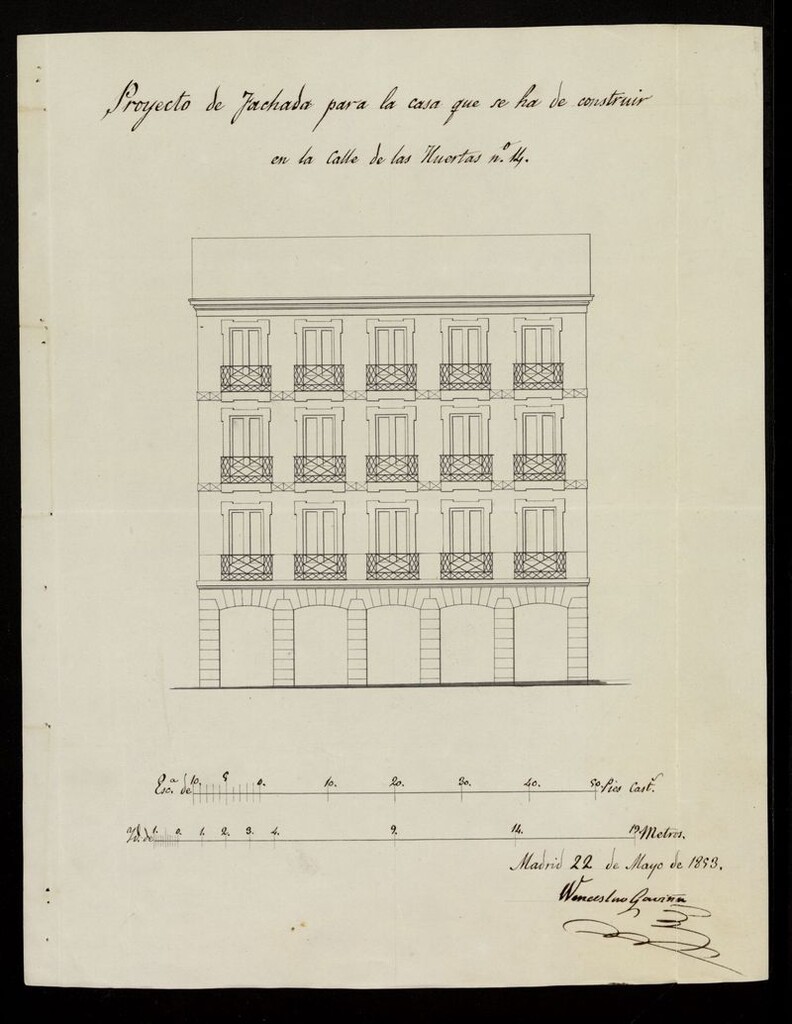 Proyecto de Fachada para la casa que se ha de construir
en la Calle de las Huertas n.º 14.
Esc.ª de 10. 5 0. 10. 20. 30. 40. 50 Pies Cast.s
Yd. de 1. 0. 1. 2. 3. 4. 9. 14. 19 Metros.
Madrid 22 de Mayo de 1853.
Wenceslao Gaviña